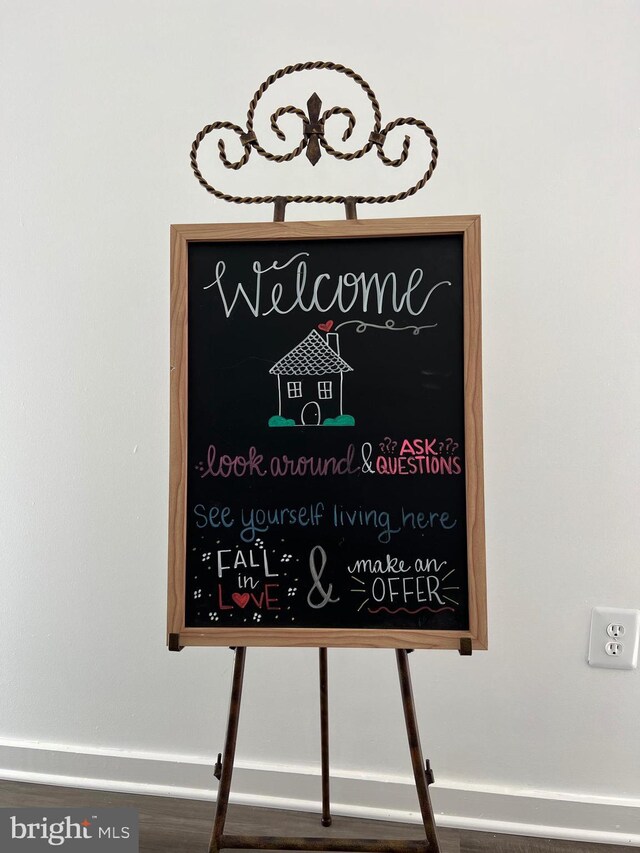 Welcome
look around & ??? ASK ???
QUESTIONS
See yourself living here
FALL
in
LOVE
&
make an
OFFER
bright MLS